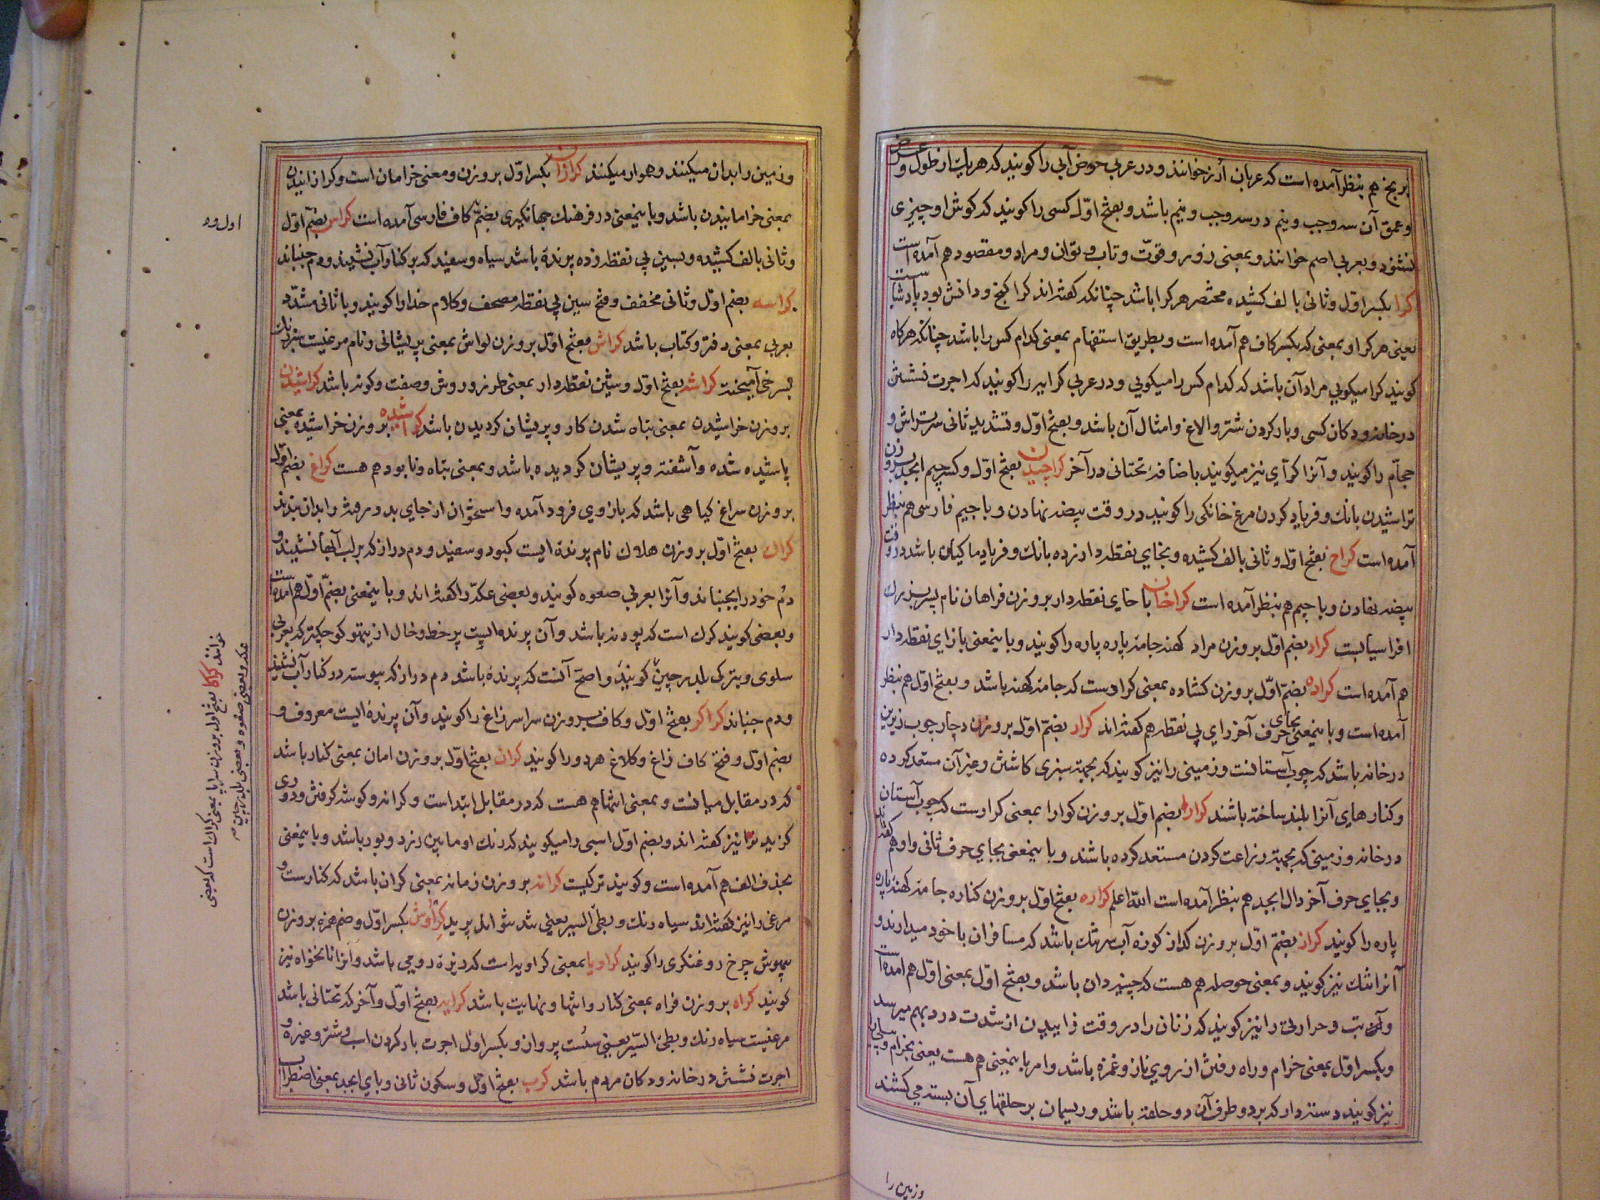 برنج هم بنظر آمده است که عربان ارز خوانند و در عربی حوض آبی را کویند که هر یك از طول و عرض
و عمق آن سه وجب و نیم در سه وجب و نیم باشد و بفتح اوّل کسی را کویند که کوش او چیزی
نشنود و بعربی اصم خوانند و بمعنی زور و قوّت و تاب و توان و مراد و مقصود هم آمده است
کرا بکسر اوّل و ثانی بالف کشیده مختصر هر کرا باشد چنانکه کفته‌اند کرا کنج و دانش بود پادشاست
یعنی هر کرا و بمعنی که بکسر کاف هم آمده است و بطریق استفهام بمعنی کدام کس را باشد چنانکه هرکاه
کویند کرا میکویی مراد آن باشد که کدام کس را میکویی و در عربی کرایه را کویند که اجرت نشستن
در خانه و دکان کسی و بار کردن شتر و الاغ و امثال آن باشد و بفتح اوّل و تشدید ثانی سرتراش و
حجاّم را کویند و آنرا کرّای نیز میکویند باضافهٔ تحتانی در آخر کراجیدن بفتح اوّل و کسر جیم ابجد بر وزن
تراشیدن بانك و فریاد کردن مرغ خانکی را کویند در وقت بیضه نهادن و با جیم فارسی هم بنظر
آمده است کراخ بفتح اوّل و ثانی بالف کشیده و بخای نقطه‌دار زده بانك و فریاد ماکیان باشد در وقت
بیضه نهادن و با جیم هم بنظر آمده است کراخان با خای نقطه‌دار بر وزن فراهان نام پسر بزرك
افراسیابست کراد بضم اوّل بر وزن مراد کهنه جامهٔ پاره پاره را کویند و باینمعنی با زای نقطه‌دار
هم آمده است کراده بضم اوّل بر وزن کشاده بمعنی کرادست که جامهٔ کهنه باشد و بفتح اوّل هم بنظر
آمده است و باینمعنی بجای حرف آخر رای بی نقطه هم کفته‌اند کرار بضم اوّل بر وزن دچار چوب زیرین
در خانه باشد که چوب آستانست و زمینی را نیز کویند که بجهة سبزی کاشتن و غیر آن مستعد کرده
و کنارهای آنرا بلند ساخته باشند کرارا بضم اوّل بر وزن کوارا بمعنی کرارست که چوب آستان
در خانه و زمینی که بجهة زراعت کردن مستعد کرده باشند و باینمعنی بجای حرف ثانی واو هم کفته‌اند
و بجای حرف آخر دال ابجد هم بنظر آمده است الله اعلم کراره بفتح اوّل بر وزن کناره جامهٔ کهنه پاره
پاره را کویند کراز بضم اوّل بر وزن کداز کوزه آب سرتنك باشد که مسافران با خود میدارند و
آنرا تنك نیز کویند و بمعنی حوصله هم هست که چینه‌دان باشد و بفتح اوّل بمعنی اوّل هم آمده است
و آن تب و حرارتی را نیز کویند که زنان را در وقت زاییدن از شدت درد بهم میرسد
و بکسر اوّل بمعنی خرام و راه رفتن از روی ناز و غمزه باشد و امر باینمعنی هم هست یعنی بخرام و بیلی را
نیز کویند دسته‌دار که بر دو طرف آن دو حلقه باشد و ریسمان بر حلقهای آن بسته می کشند
وزمین را
وزمین را بدان میکنند و هموار میکنند کرازان بکسر اوّل بر وزن و معنی خرامان است و کرازانیدن
بمعنی خرامانیدن باشد و باینمعنی در فرهنك جهانکیری بضم کاف فارسی آمده است کراس بضم اوّل
و ثانی بالف کشیده و بسین بی نقطه زده پرندهٔ باشد سیاه و سفید که بر کنار آب نشیند و دم جنباند
کراسه بضم اوّل و ثانی مخفف و فتح سین بی نقطه مصحف و کلام خدا را کویند و با ثانی مشدّد
بعربی بمعنی دفتر و کتاب باشد کراش بفتح اوّل بر وزن لواش بمعنی پریشانی و نام مرغیست سبزرنك
بسرخی آمیخته کراشه بفتح اوّل و شین نقطه‌دار بمعنی طرز و روش و صفت و کونه باشد کراشیدن
بر وزن خراشیدن بمعنی تباه شدن کار و پریشان کردیدن باشد کراشیده بر وزن خراشیده بمعنی
پاشیده شده و آشفته و پریشان کردیده باشد و بمعنی تباه و نابود هم هست کراغ بضم اوّل
بر وزن سراغ کیاهی باشد که بازوی فرود آمده و استخوان از جای بدر رفته را بدان بندند
کراك بفتح اوّل بر وزن هلاك نام پرندهٔ ایست کبود و سفید و دم دراز که بر لب آبها نشیند و
دم خود را بجنباند و آنرا بعربی صعوه کویند و بعضی عکه را کفته‌اند و باینمعنی بضم اوّل هم آمده است
و بعضی کویند کرك است که پودنه باشد و آن پرندهٔ ایست پر خط و خال از تیهو کوچکتر که بعربی
سلوی و بترکی بلدرچین کویند و اصح آنست که پرندهٔ باشد دم دراز که پیوسته در کنار آب نشیند
و دم جنباند کراکر بفتح اوّل و کاف بر وزن سراسر زاغ را کویند و آن پرندهٔ ایست معروف و
بضم اوّل و فتح کاف زاغ و کلاغ هر دو را کویند کران بفتح اوّل بر وزن امان بمعنی کنار باشد
که در مقابل میانست و بمعنی انتها هم هست که در مقابل ابتداست و کرانه و کوشه کرفتن و دوری
کزیدن را نیز کفته‌اند و بضم اوّل اسبی را میکویند که رنك او مابین زرد و بور باشد و باینمعنی
بحذف الف هم آمده است و کویند ترکیست کرانه بر وزن زمانه بمعنی کران باشد که کنارست و
مرغی را نیز کفته‌اند سیاه رنك و بطی السیر یعنی تند نتواند پرید کراوش بکسر اوّل و ضم همزه بر وزن
سپوش چرخ روغنکری را کویند کراویا بمعنی کراویه است که زیرهٔ رومی باشد و آنرا نانخواه نیز
کویند کراه بر وزن فراه بمعنی کنار و انتها و نهایت باشد کرایه بفتح اوّل و آخر که تحتانی باشد
مرغیست سیاه رنك و بطی السیر یعنی سست پرواز و بکسر اوّل اجرت بار کردن اسب و شتر و غیره و
اجرت نشستن در خانه و دکان مردم باشد کرب بفتح اوّل و سکون ثانی و بای ابجد بمعنی اضطراب
اول وه
عکه و بعضی صعوه و بعضی بلدرچین
خوانند کراکا بفتح اول بر وزن سراپا بمعنی کراك است که بعضی